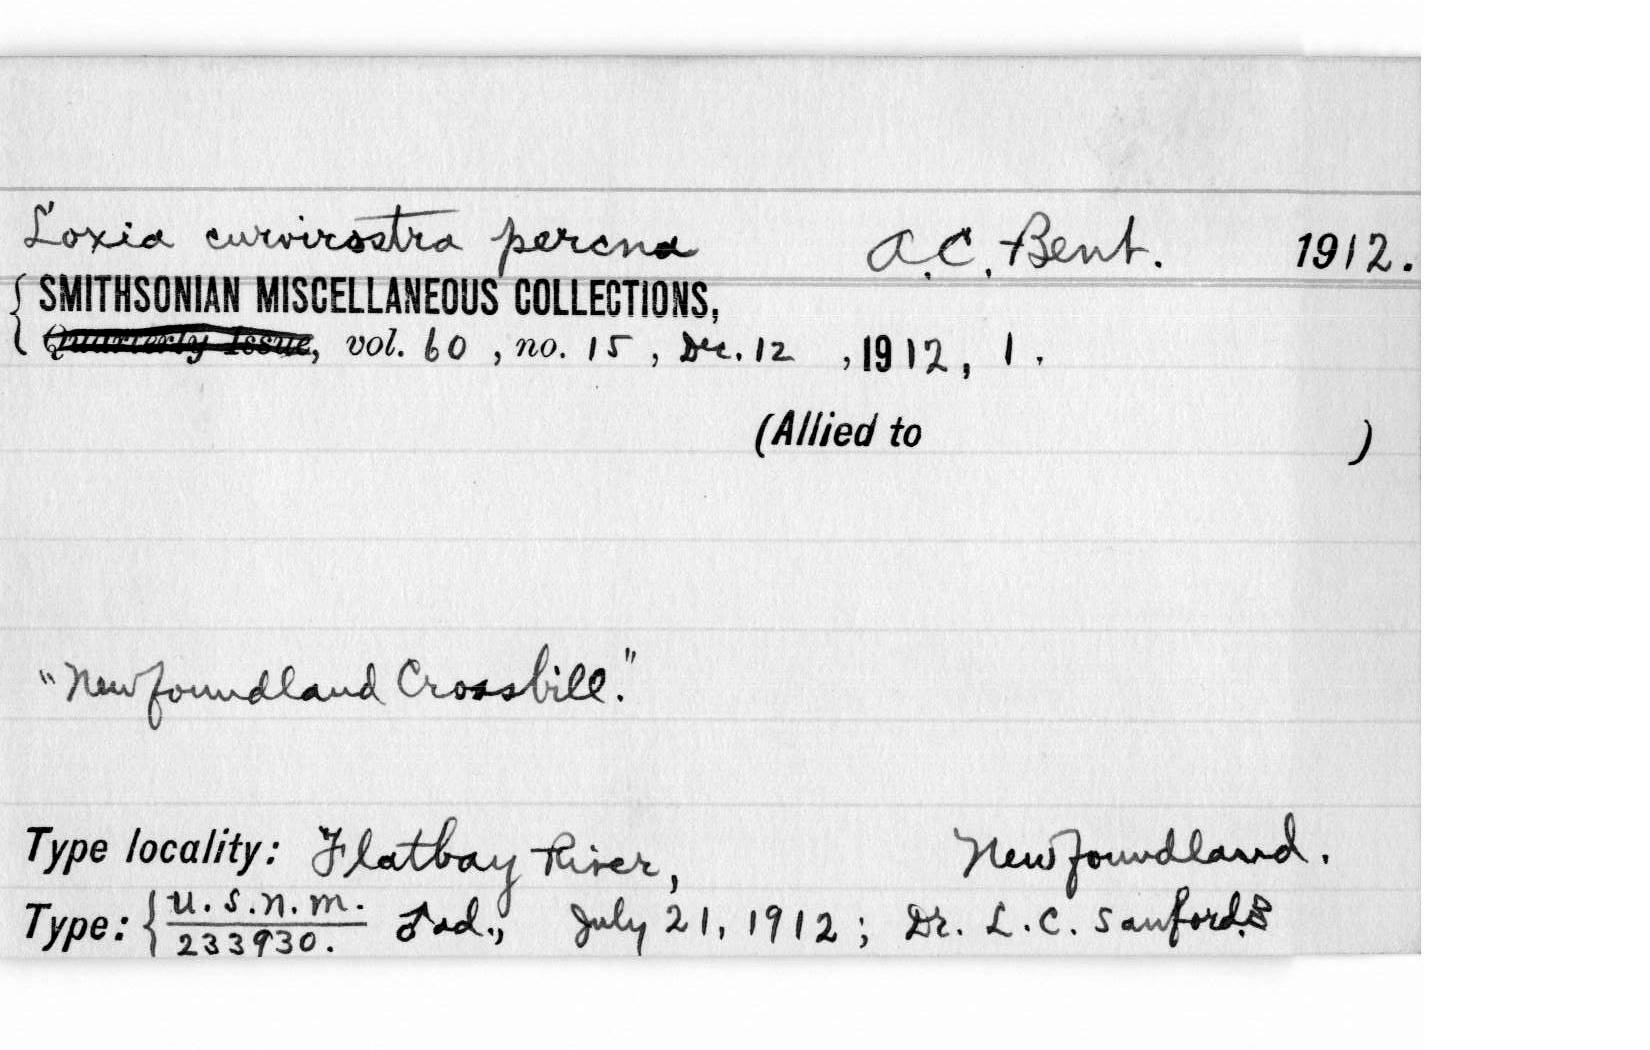 Loxia curvirostra percna A.C. Bent. 1912.
{ SMITHSONIAN MISCELLANEOUS COLLECTIONS,
Quarterly Issue, vol. 60, no. 15, Dec. 12, 1912, 1.
(Allied to )
"Newfoundland Crossbill."
Type locality: Flatbay River, Newfoundland.
Type: { U.S.N.M. ♂ ad., July 21, 1912; Dr. L.C. Sanford.
233930.